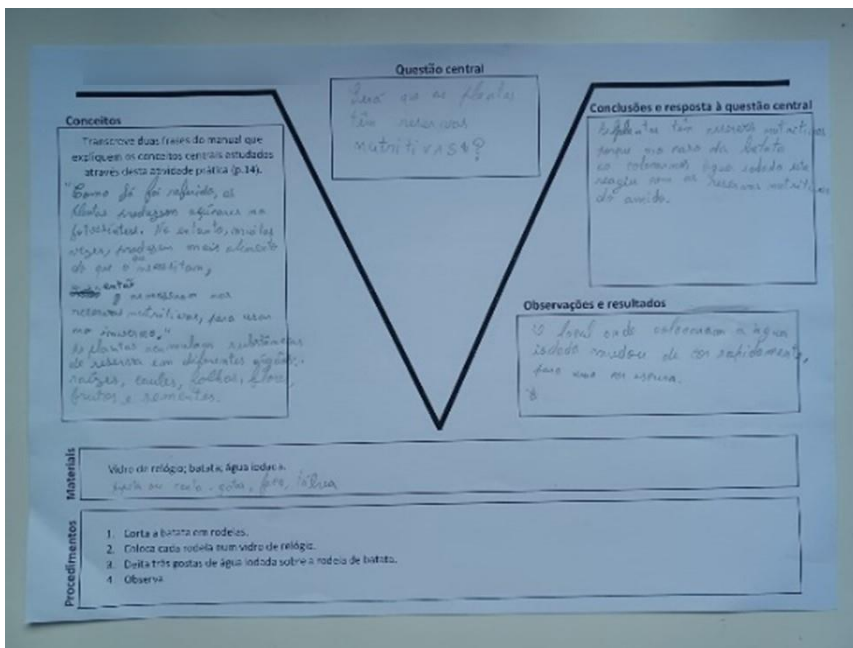 Questão central
Será que as plantas
têm reservas
nutritivas?
Conceitos
Transcreve duas frases do manual que
expliquem os conceitos centrais estudados
através desta atividade prática (p.14).
"Como já foi referido, as
plantas produzem açúcares na
fotossíntese. No entanto, muitas
vezes, produzem mais alimento
do que o que necessitam,
então
armazenam nas
reservas nutritivas, para usar
no inverno."
As plantas acumulam substâncias
de reserva em diferentes órgãos:
raízes, caules, folhas, flores,
frutos e sementes.
Conclusões e resposta à questão central
As plantas têm reservas nutritivas
porque no caso da batata
ao colocarmos água iodada
reagiu com as reservas nutritivas
do amido.
Observações e resultados
O local onde colocaram a água
iodada mudou de cor rapidamente,
para uma cor escura.
Materiais
Vidro de relógio; batata; água iodada.
Procedimentos
1. Corta a batata em rodelas.
2. Coloca cada rodela num vidro de relógio.
3. Deita três gostas de água iodada sobre a rodela de batata.
4 Observa